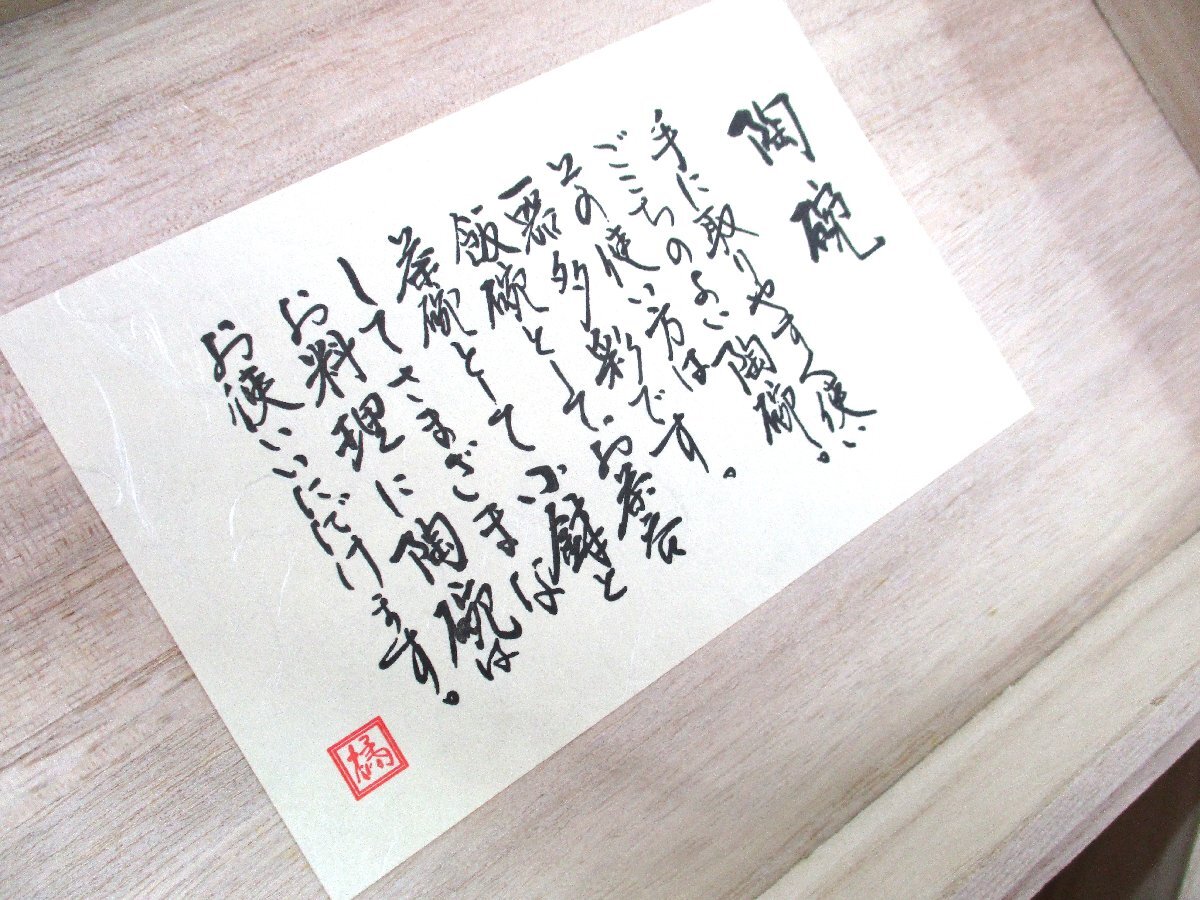 陶碗
手に取りやすく使い
ごこちのよい陶碗。
その使い方は
一器多彩です。
飯碗として、お茶呑
茶碗として小鉢と
してさまざまな
お料理に陶碗は
お使いいただけます。
橘